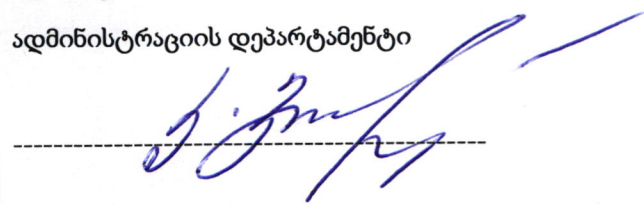 ადმინისტრაციის დეპარტამენტი